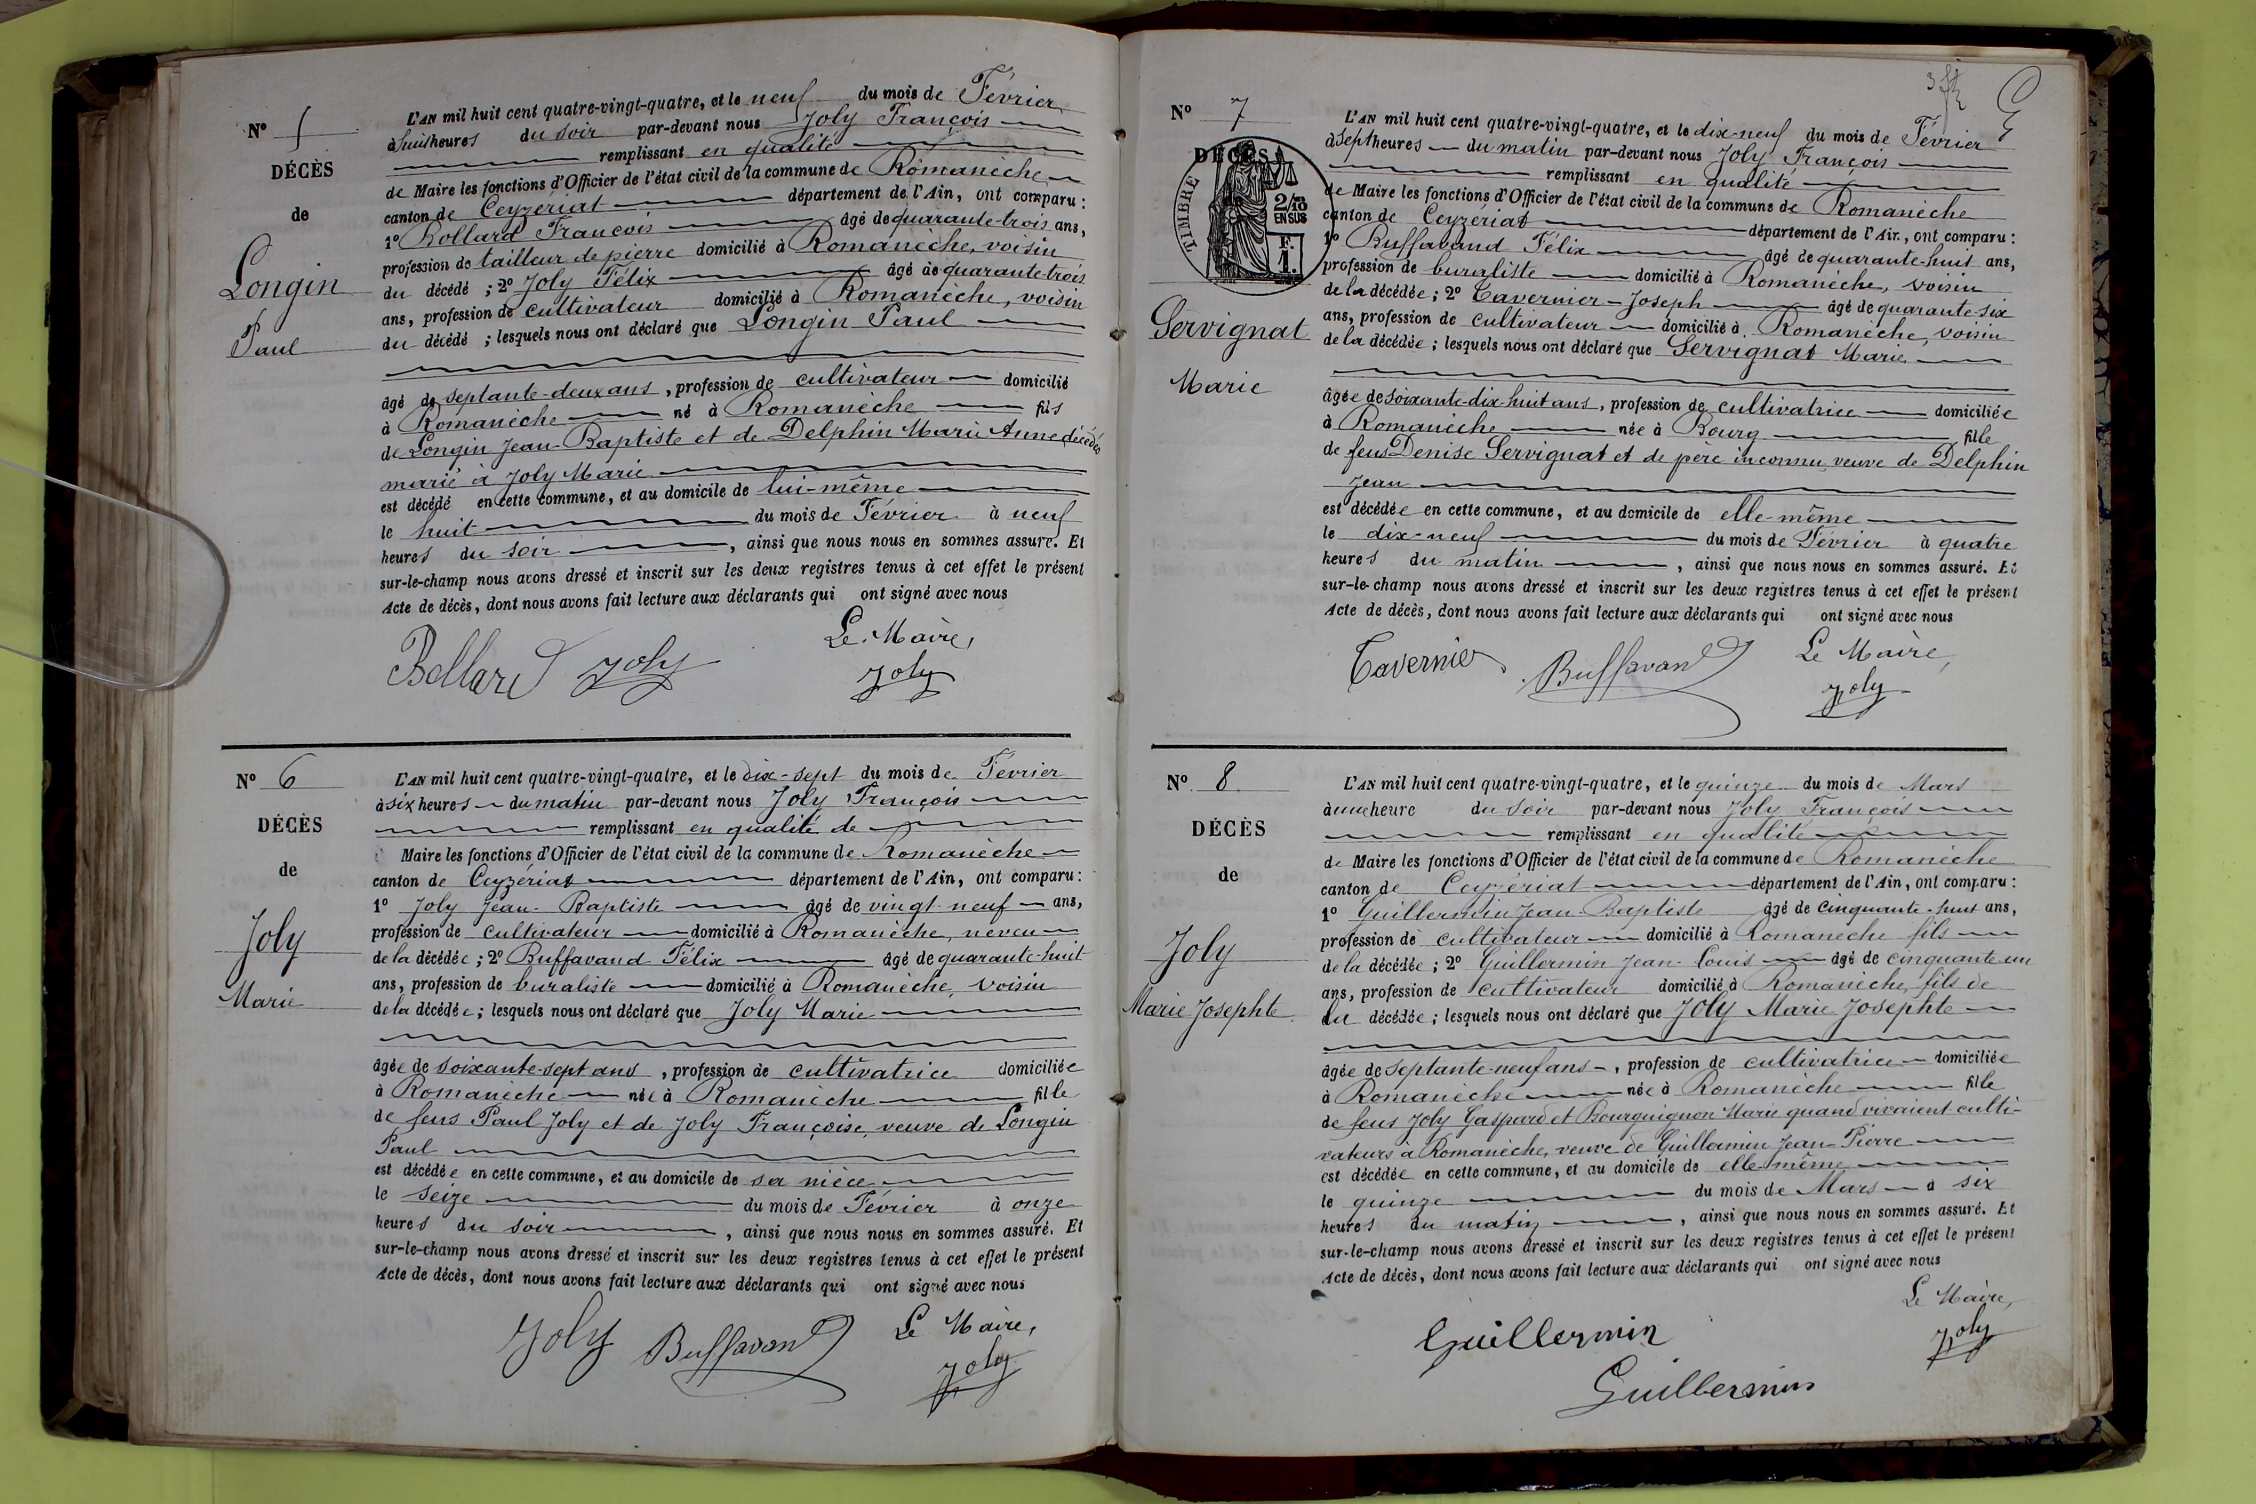 N° 5
DÉCÈS
de
Longin
Paul
L'AN mil huit cent quatre-vingt-quatre, et le neuf du mois de Février
à huit heures du soir par-devant nous Joly François
remplissant en qualité
de Maire les fonctions d'Officier de l'état civil de la commune de Romanèche
canton de Ceyzériat département de l'Ain, ont comparu :
1° Bollard François âgé de quarante-trois ans,
profession de tailleur de pierre domicilié à Romanèche, voisin
du décédé ; 2° Joly Félix âgé de quarante-trois
ans, profession de cultivateur domicilié à Romanèche, voisin
du décédé ; lesquels nous ont déclaré que Longin Paul
âgé de septante-deux ans, profession de cultivateur domicilié
à Romanèche né à Romanèche fils
de Longin Jean-Baptiste et de Delphin Marie Anne décédés
marié à Joly Marie
est décédé en cette commune, et au domicile de lui-même
le huit du mois de Février à neuf
heures du soir, ainsi que nous nous en sommes assuré. Et
sur-le-champ nous avons dressé et inscrit sur les deux registres tenus à cet effet le présent
Acte de décès, dont nous avons fait lecture aux déclarants qui ont signé avec nous
Le Maire,
Bollard Joly Joly
N° 6
DÉCÈS
de
Joly
Marie
L'AN mil huit cent quatre-vingt-quatre, et le dix-sept du mois de Février
à six heures du matin par-devant nous Joly François
remplissant en qualité de
Maire les fonctions d'Officier de l'état civil de la commune de Romanèche
canton de Ceyzériat département de l'Ain, ont comparu :
1° Joly Jean-Baptiste âgé de vingt-neuf ans,
profession de cultivateur domicilié à Romanèche, neveu
de la décédée ; 2° Buffavand Félix âgé de quarante-huit
ans, profession de buraliste domicilié à Romanèche, voisin
de la décédée ; lesquels nous ont déclaré que Joly Marie
âgée de soixante-sept ans, profession de cultivatrice domiciliée
à Romanèche née à Romanèche fille
de feus Paul Joly et de Joly Françoise, veuve de Longin
Paul
est décédée en cette commune, et au domicile de sa nièce
le seize du mois de Février à onze
heures du soir, ainsi que nous nous en sommes assuré. Et
sur-le-champ nous avons dressé et inscrit sur les deux registres tenus à cet effet le présent
Acte de décès, dont nous avons fait lecture aux déclarants qui ont signé avec nous
Le Maire,
Joly Buffavand Joly
N° 7
DÉCÈS
TIMBRE
2/10
EN SUS
F.
1.
Servignat
Marie
L'AN mil huit cent quatre-vingt-quatre, et le dix-neuf du mois de Février
à sept heures du matin par-devant nous Joly François
remplissant en qualité
de Maire les fonctions d'Officier de l'état civil de la commune de Romanèche
canton de Ceyzériat département de l'Ain, ont comparu :
1° Buffavand Félix âgé de quarante-huit ans,
profession de buraliste domicilié à Romanèche, voisin
de la décédée ; 2° Tavernier-Joseph âgé de quarante-six
ans, profession de cultivateur domicilié à Romanèche, voisin
de la décédée ; lesquels nous ont déclaré que Servignat Marie
âgée de soixante-dix-huit ans, profession de cultivatrice domiciliée
à Romanèche née à Bourg fille
de feus Denise Servignat et de père inconnu, veuve de Delphin
Jean
est décédée en cette commune, et au domicile de elle-même
le dix-neuf du mois de Février à quatre
heures du matin, ainsi que nous nous en sommes assuré. Et
sur-le-champ nous avons dressé et inscrit sur les deux registres tenus à cet effet le présent
Acte de décès, dont nous avons fait lecture aux déclarants qui ont signé avec nous
Le Maire,
Tavernier Buffavand Joly
N° 8
DÉCÈS
de
Joly
Marie Josephte
L'AN mil huit cent quatre-vingt-quatre, et le quinze du mois de Mars
à une heure du soir par-devant nous Joly François
remplissant en qualité
de Maire les fonctions d'Officier de l'état civil de la commune de Romanèche
canton de Ceyzériat département de l'Ain, ont comparu :
1° Guillermin Jean-Baptiste âgé de cinquante-huit ans,
profession de cultivateur domicilié à Romanèche fils
de la décédée ; 2° Guillermin Jean-Louis âgé de cinquante un
ans, profession de cultivateur domicilié à Romanèche, fils de
la décédée ; lesquels nous ont déclaré que Joly Marie Josephte
âgée de septante-neuf ans, profession de cultivatrice domiciliée
à Romanèche née à Romanèche fille
de feus Joly Gaspard et Bourguignon Marie quand vivaient culti-
vateurs à Romanèche, veuve de Guillermin Jean-Pierre
est décédée en cette commune, et au domicile de elle-même
le quinze du mois de Mars à six
heures du matin, ainsi que nous nous en sommes assuré. Et
sur-le-champ nous avons dressé et inscrit sur les deux registres tenus à cet effet le présent
Acte de décès, dont nous avons fait lecture aux déclarants qui ont signé avec nous
Le Maire,
Guillermin Joly
Guillermin